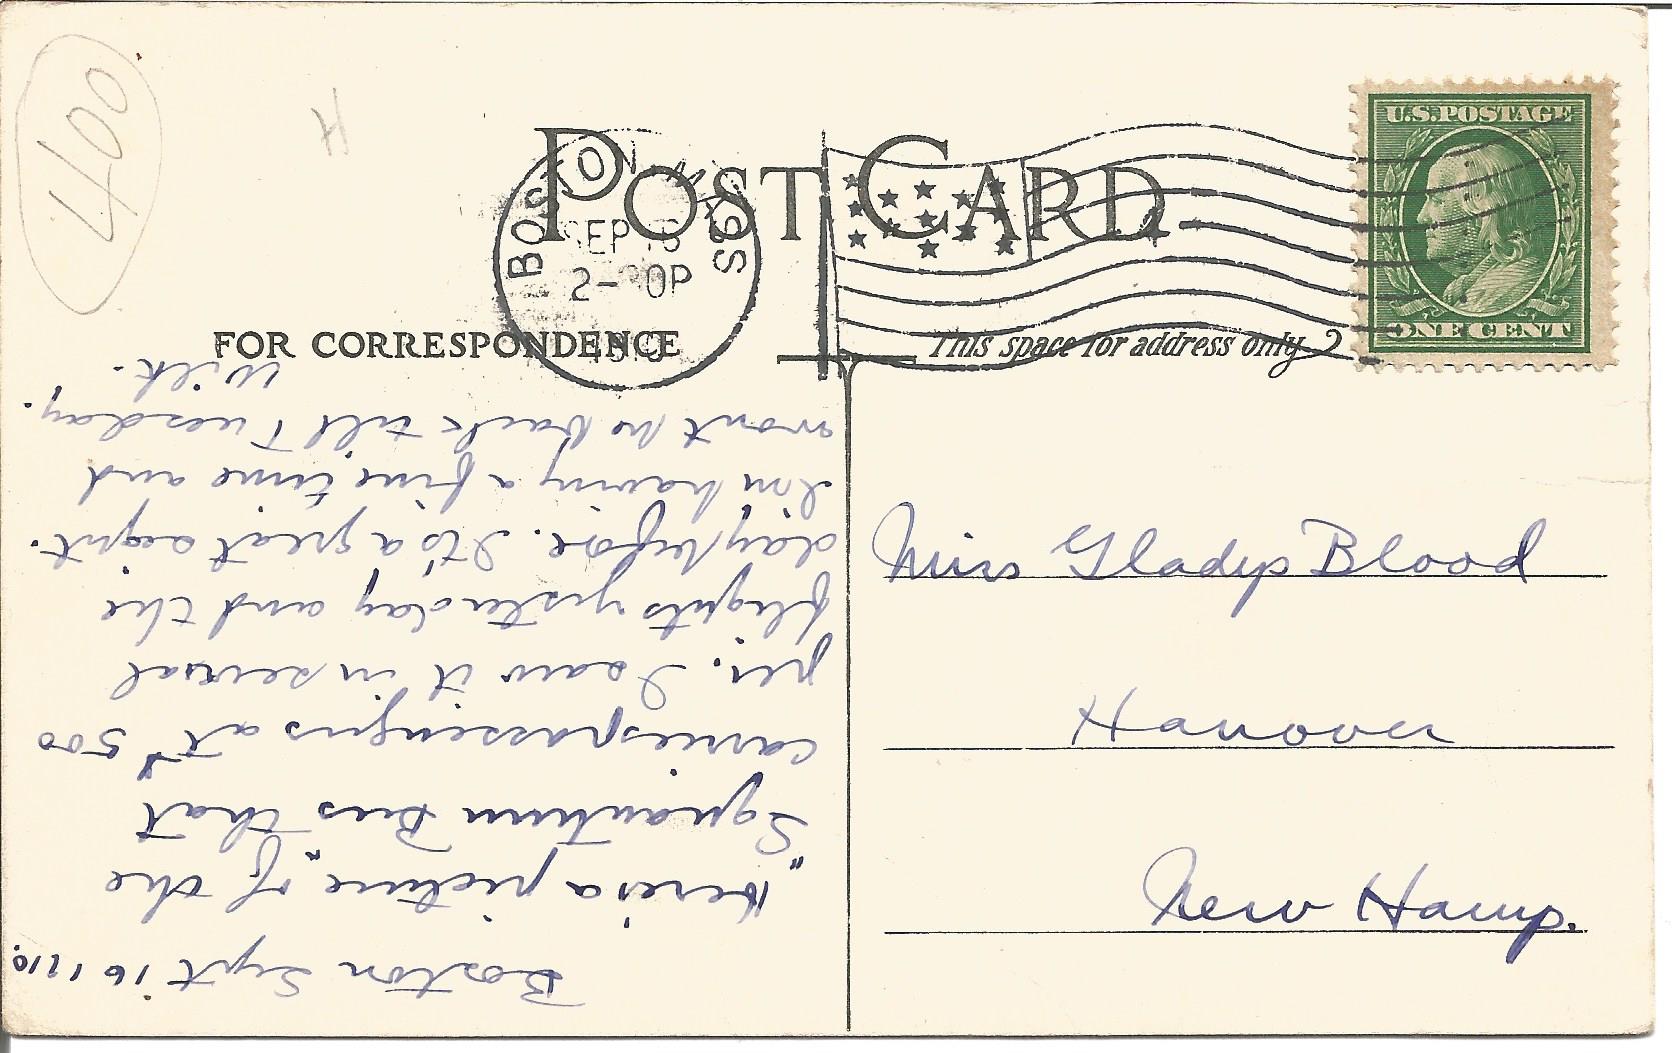 400
H
POST CARD
BOSTON, MASS
SEP 16
2- 0P
1910
U.S. POSTAGE
ONE CENT
FOR CORRESPONDENCE
This space for address only
2
Boston Sept 16 1910.
Here's a picture of the
"Squantum Bus" that
carries passengers at $500
per. I saw it in several
flights yesterday and the
day before. It's a great sight.
I'm having a fine time and
won't be back till Tuesday.
Wilk.
Miss Gladys Blood
Hanover
New Hamp.